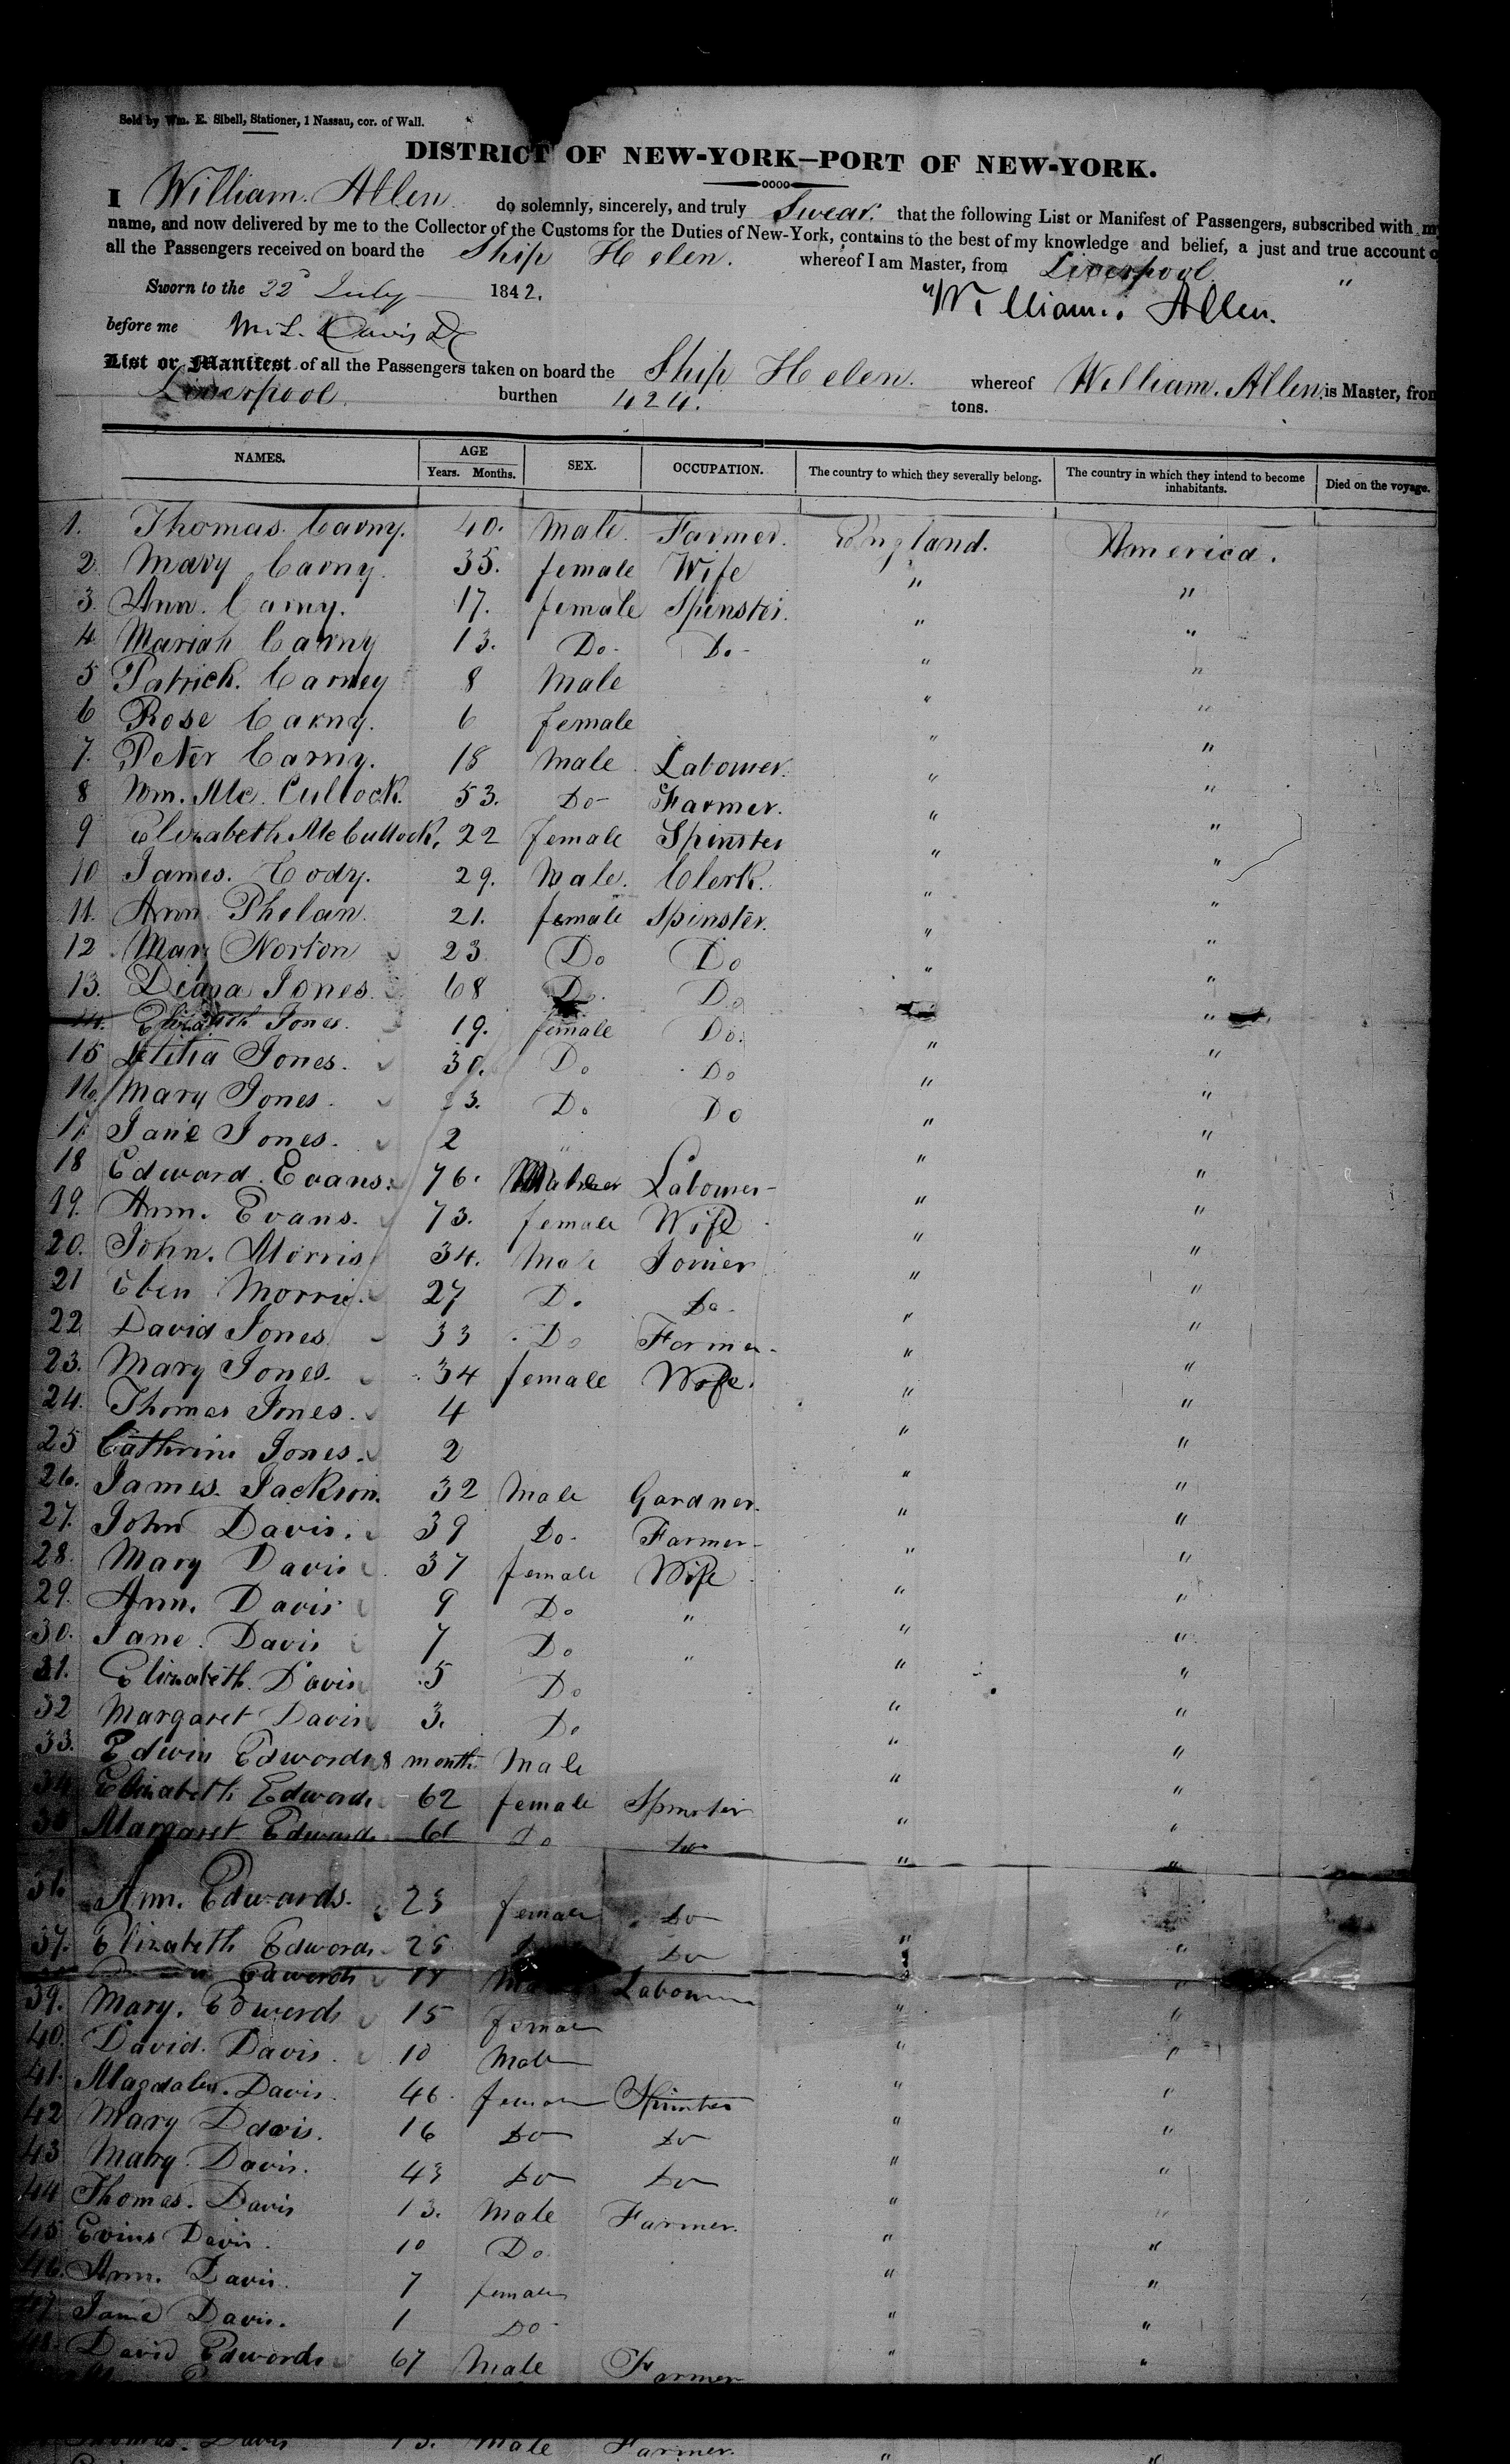 Sold by Wm. E. Sibell, Stationer, 1 Nassau, cor. of Wall.
DISTRICT OF NEW-YORK—PORT OF NEW-YORK.
I William. Allen do solemnly, sincerely, and truly Swear. that the following List or Manifest of Passengers, subscribed with my
name, and now delivered by me to the Collector of the Customs for the Duties of New-York, contains to the best of my knowledge and belief, a just and true account of
all the Passengers received on board the Ship Helen. whereof I am Master, from Liverpool. "
Sworn to the 22d July 1842. William. Allen.
before me M. L. Davis
List or Manifest of all the Passengers taken on board the Ship Helen. whereof William. Allen. is Master, from
Liverpool. burthen 424. tons.
NAMES. AGE Years. Months. SEX. OCCUPATION. The country to which they severally belong. The country in which they intend to become inhabitants. Died on the voyage.
1. Thomas. Carny. 40. Male. Farmer. England. America.
2. Mary Carny. 35. female Wife " "
3. Ann. Carny. 17. female Spinster. " "
4 Mariah Carny 13. Do- Do- " "
5 Patrick. Carney 8 Male " "
6 Rose Carny. 6 female " "
7. Peter Carny. 18 Male Labourer. " "
8 Wm. Mc. Cullock. 53. Do- Farmer. " "
9 Elizabeth McCullock, 22 female Spinster " "
10 James. Cody. 29. Male. Clerk. " "
11. Ann Phelan. 21. female Spinster. " "
12 Mary Norton 23 Do Do " "
13. Diana Jones. 68 Do. Do " "
14. Elizabeth Jones. 19. female Do. " "
15 Letitia Jones. 30. Do Do " "
16. Mary Jones. 3. Do Do " "
17. Jane Jones. 2 " " "
18 Edward. Evans. 76. Male Labourer- " "
19. Ann. Evans. 73. female Wife " "
20. John. Morris 34. Male Joiner " "
21 Eben Morris. 27 Do Do- " "
22 David Jones 33 Do Farmer- " "
23. Mary Jones. 34 female Wife. " "
24. Thomas Jones. 4 " "
25 Cathrine Jones. 2 " "
26. James. Jackson. 32 Male Gardner. " "
27. John Davis. 39 Do- Farmer- " "
28. Mary Davis 37 female Wife " "
29. Ann. Davis 9 Do " " "
30. Jane. Davis 7 Do " " "
31. Elizabeth. Davis 5 Do " "
32 Margaret Davis 3. Do " "
33. Edwin Edwards 8 months Male " "
34 Elizabeth Edwards 62 female Spinster " "
35 Margaret Edwards Do Do " "
36 Ann. Edwards. 23 female Do
37. Elizabeth Edwards 25 Do " "
Edwards Male Labourer "
39. Mary. Edwards 15 female " "
40. David. Davis. 10 Male " "
41. Magdalen. Davis. 46. female Spinster " "
42 Mary Davis. 16 Do Do " "
43 Mary. Davis. 43 Do Do " "
44 Thomas. Davis 13. Male Farmer. " "
45 Evins Davis. 10 Do. " "
46. Ann. Davis. 7 female " "
47. Jane Davis. 1 Do " "
48. David Edwards 67 Male Farmer " "
Thomas. Davis 13. Male Farmer. " "